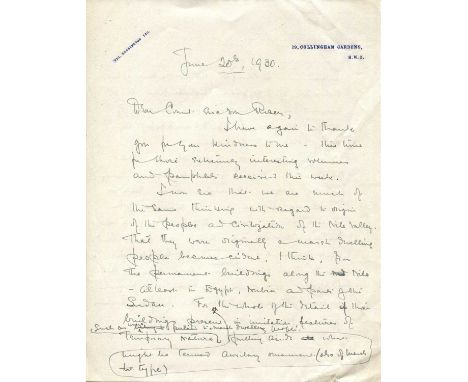 TEL. KENSINGTON
19, COLLINGHAM GARDENS,
S.W.5.
June 20th, 1930.
Dear Count
I have again to thank
you for your kindness to me - this time
for those extremely interesting volumes
and pamphlets received this week.
I now see that we are much of
the same thinking with regard to origin
of the peoples and civilization of the Nile Valley.
That they were originally a marsh dwelling
people becomes evident, I think, from
the permanent buildings along the Nile
- at least in Egypt, Nubia and parts of the
Sudan. For the whole of the detail of their
buildings present in imitative features of
such as peculiar to marsh dwelling people.
temporary nature
might be termed auxiliary ornament (also of marsh
type)